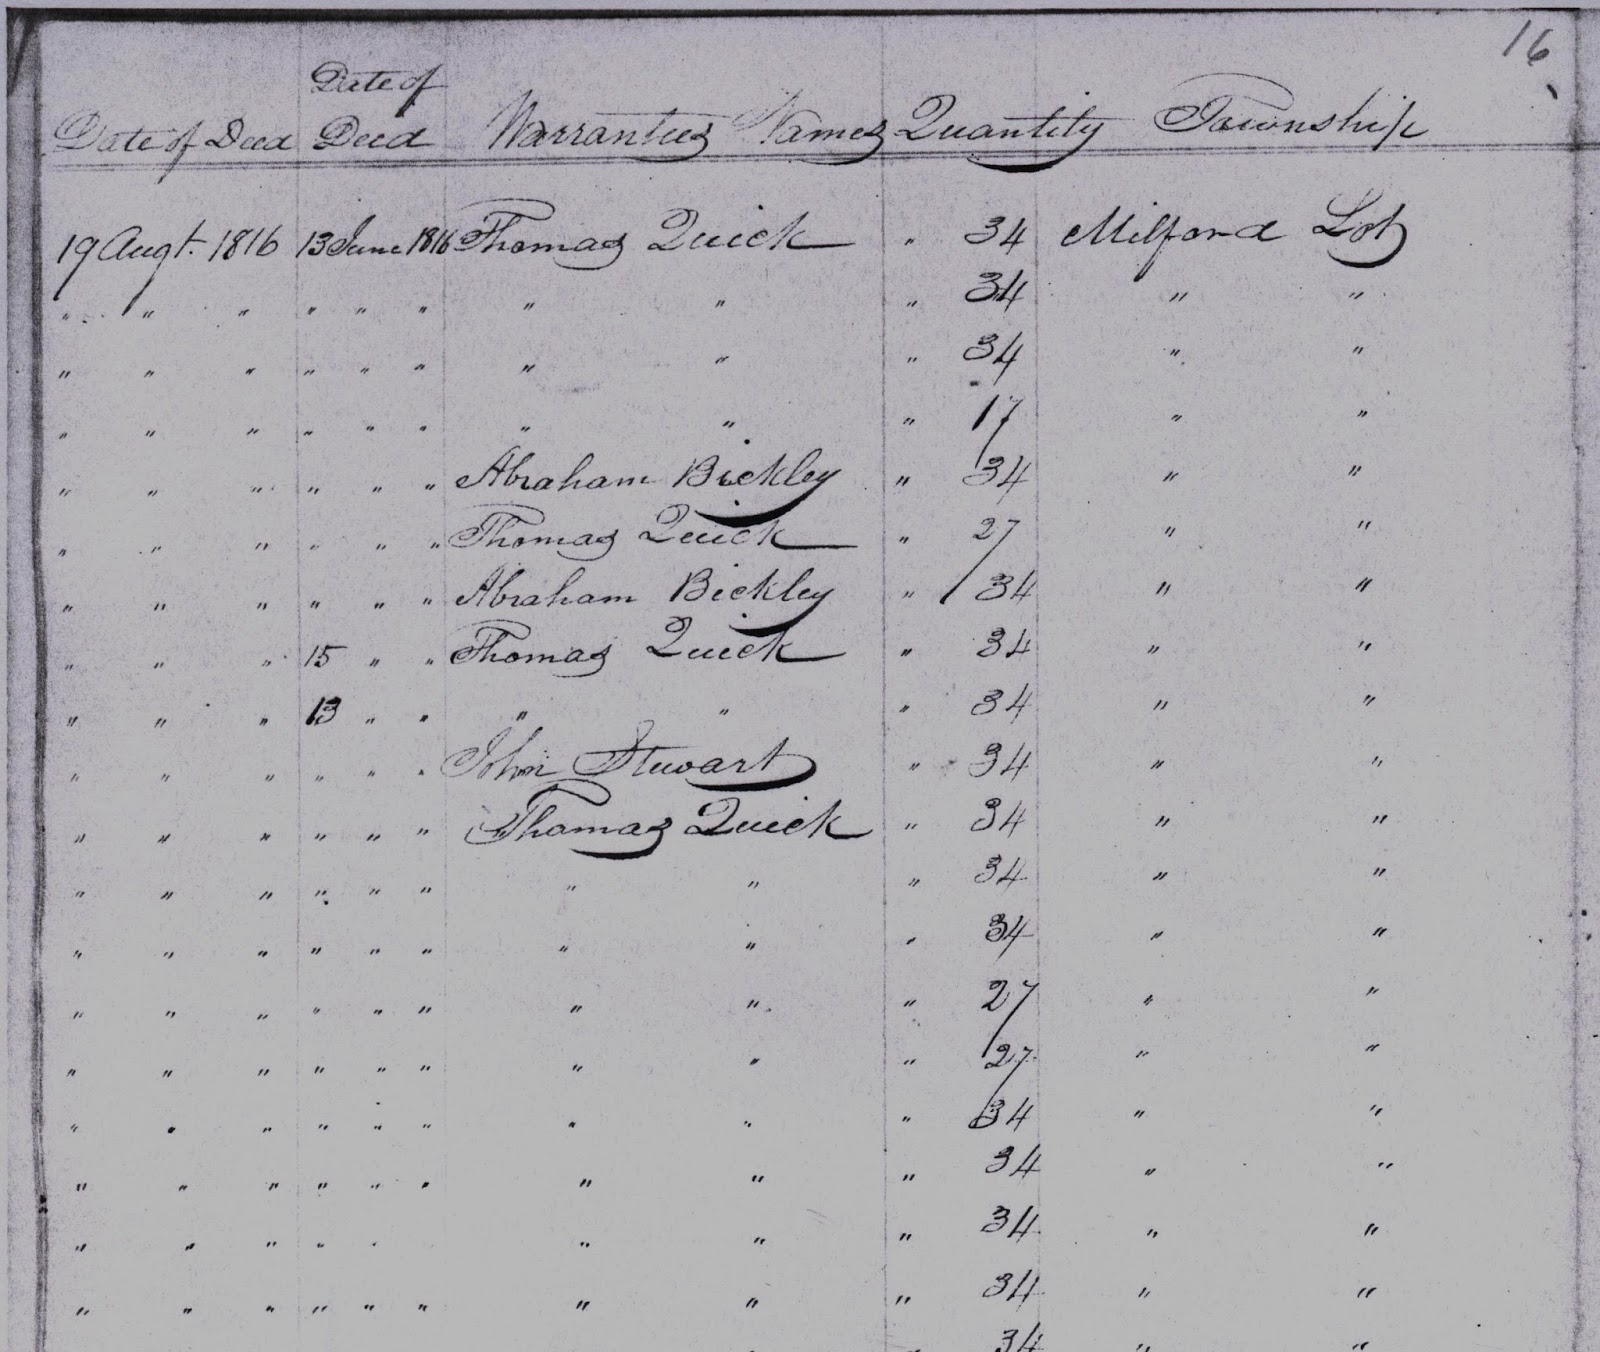 16
Date of Deed Date of Deed Warrantees Names Quantity Township
19 Augt. 1816 13 June 1816 Thomas Quick " 34 Milford Lot
" " " " " " " " " 34 " "
" " " " " " " " " 34 " "
" " " " " " " " " 17 " "
" " " " " " Abraham Bickley " 34 " "
" " " " " " Thomas Quick " 27 " "
" " " " " " Abraham Bickley " 34 " "
" " " 15 " " Thomas Quick " 34 " "
" " " 13 " " " " " 34 " "
" " " " " " John Stewart " 34 " "
" " " " " " Thomas Quick " 34 " "
" " " " " " " " " 34 " "
" " " " " " " " " 34 " "
" " " " " " " " " 27 " "
" " " " " " " " " 27 " "
" " " " " " " " " 34 " "
" " " " " " " " " 34 " "
" " " " " " " " 34 " "
" " " " " " " " " 34 " "
" 34 " "